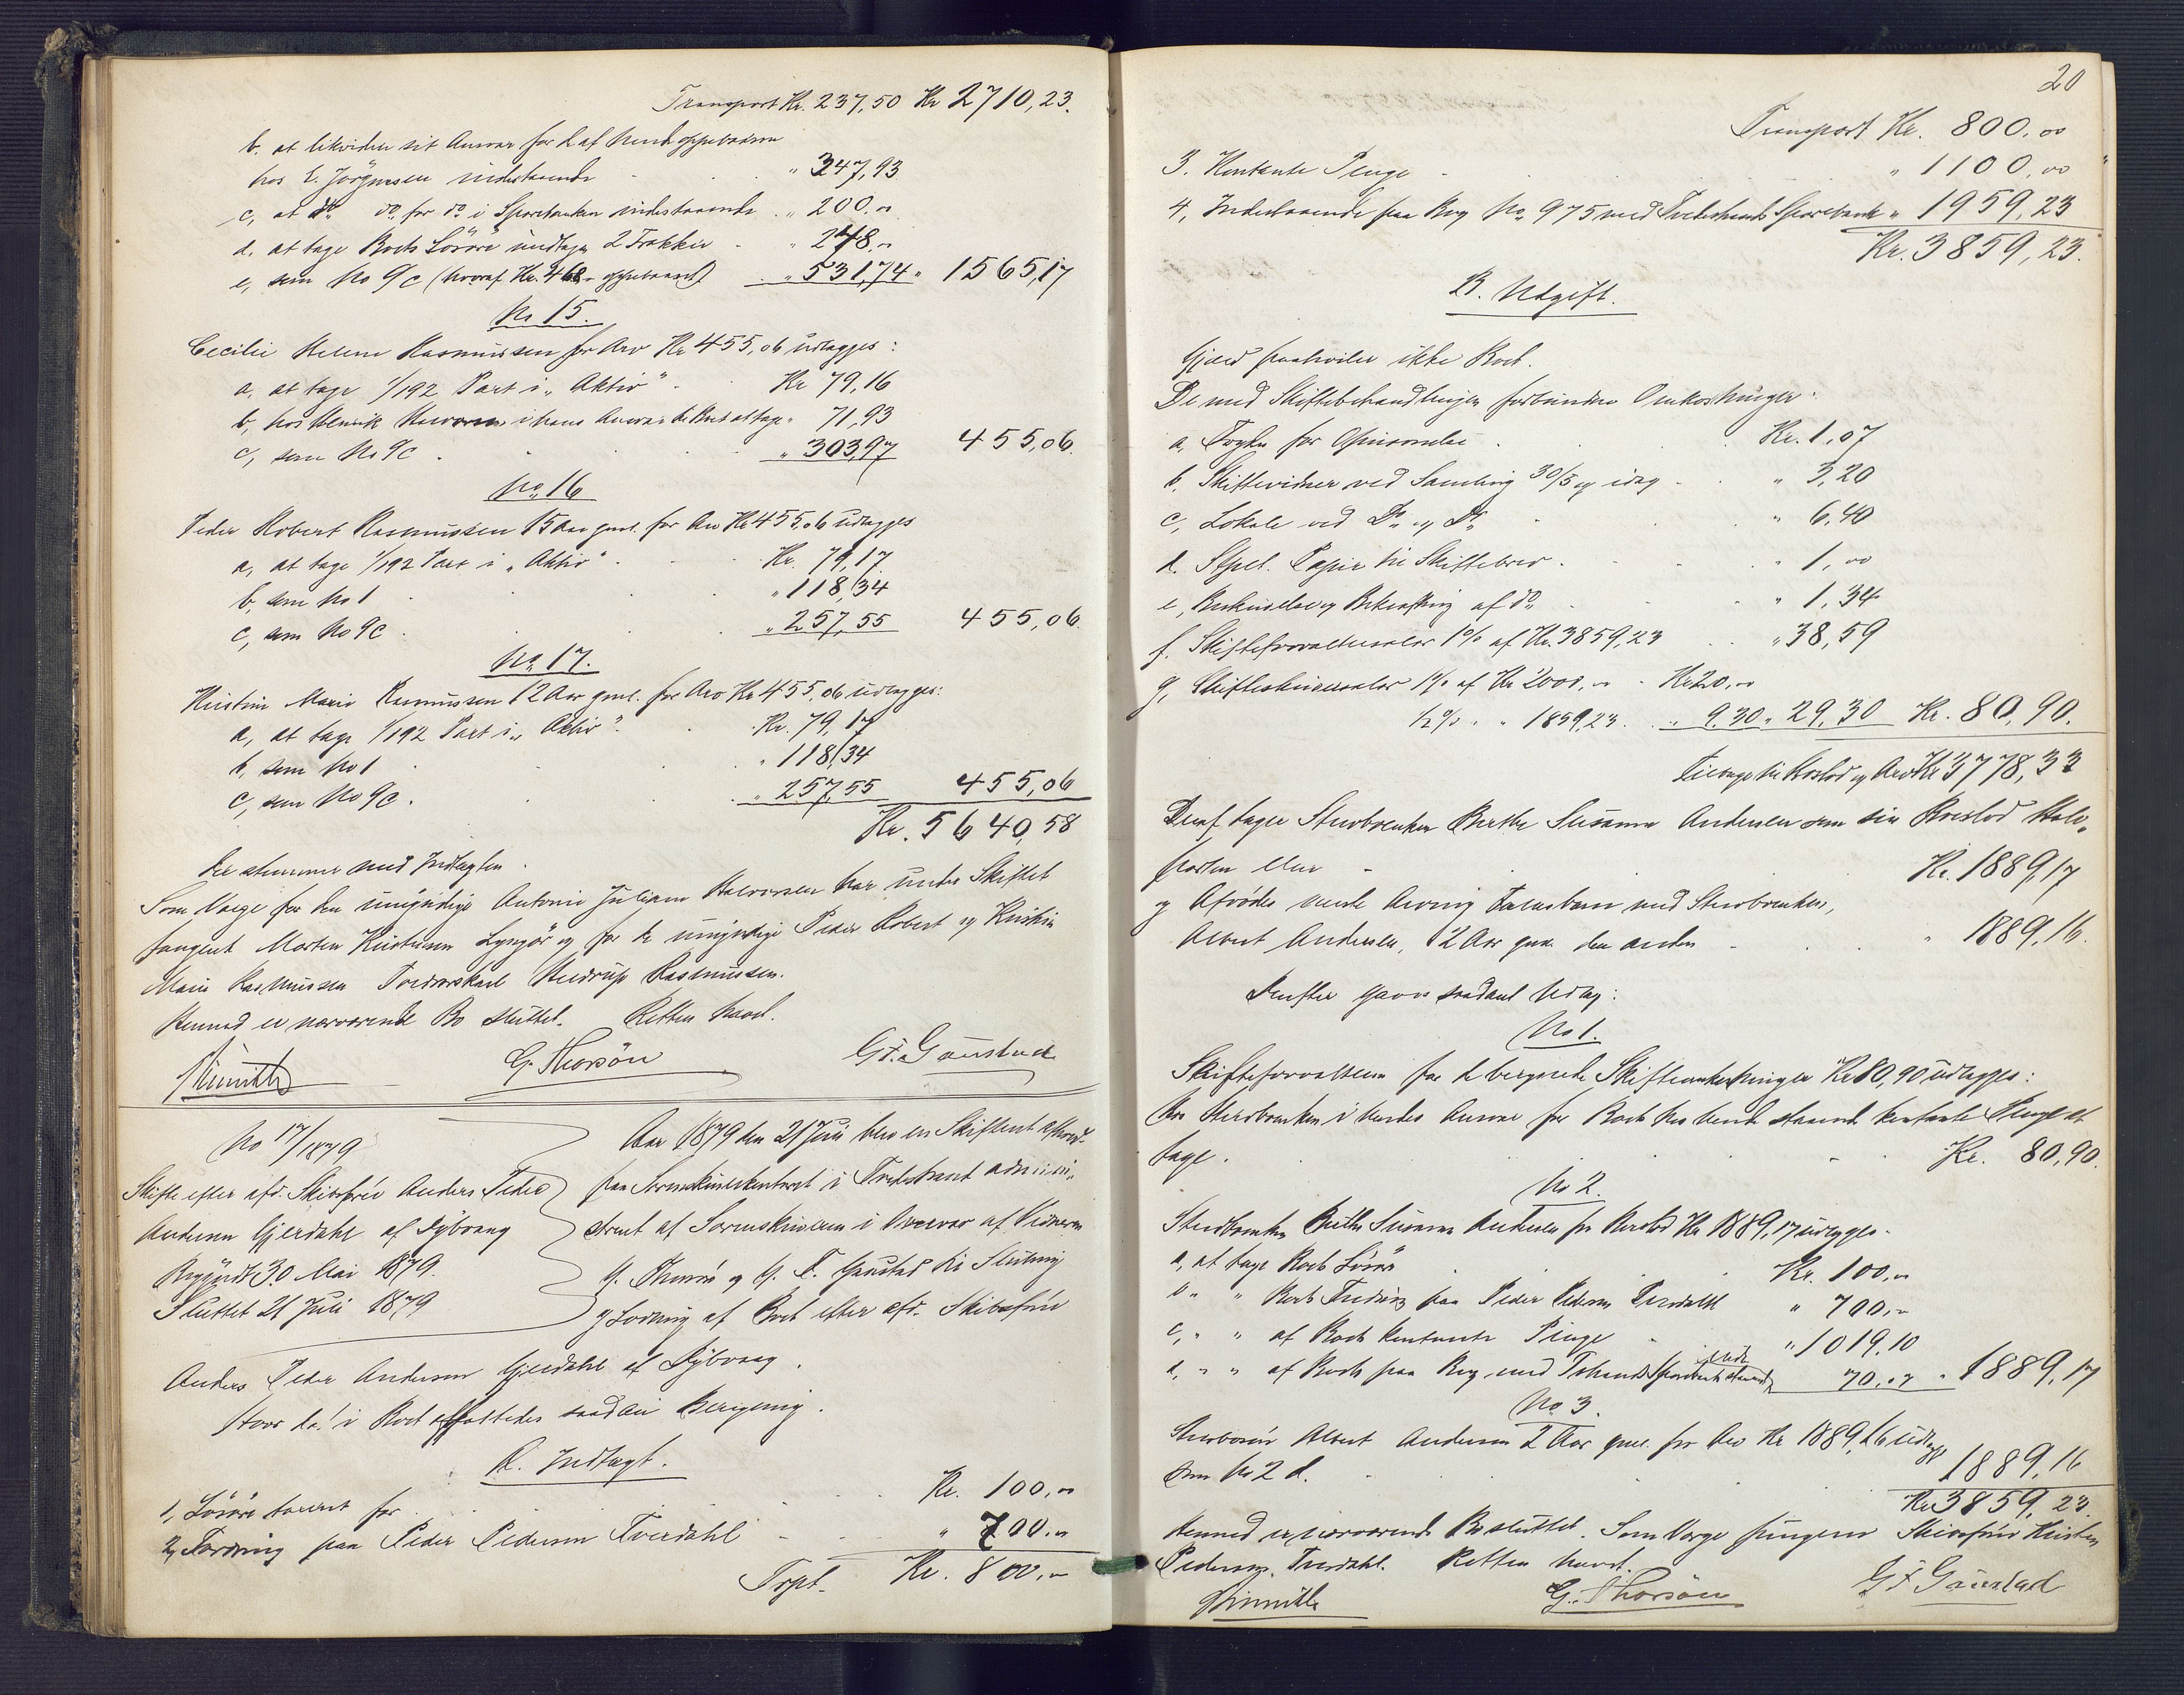 Transport Kr. 237,50 Kr 2710,23.
b. at likvidere sit Ansvar for d. af hende oppebaarne
hos E. Jörgensen indestaaende " 347,93
c, at do do for do i Sparebanken indestaaende " 200.„
d. at tage Boets Lösöre undtagen 2 Frakker " 248.„
e, som No 9c (hvoraf Kr. 468 „ oppebaaret) " 531,74 " 1565,17
No 15.
Cecilie Helene Rasmussen for Arv Kr 455,06 udlægges:
a, at tage 1/192 Part i „Aktiv" Kr 79,16
b, hos Henrik Halvorsen i hans Ansvar til Boet at tage " 71,93
c, som No 9c " 303,97 455,06.
No 16
Peder Robert Rasmussen 15 Aar gml. for Arv Kr 455,06 udlægges
a, at tage 1/192 Part i „Aktiv" Kr. 79,17
b, som No 1 " 118,34
c, som No 9c " 257,55 455,06.
No 17.
Kirstine Marie Rasmussen 12 Aar gml. for Arv Kr 455,06 udlægges:
a, at tage 1/192 Part i „Aktiv" Kr. 79,17
b, som No 1 " 118,34
c, som No 9c. " 257,55 455,06
Kr. 5640,58
der stemmer med Indtægten.
Som Værge for den umyndige Antonie Juliane Halvorsen har under Skiftet
fungeret Morten Kristensen Lyngör og for de umyndige Peder Robert og Kirstine
Marie Rasmussen Rasmussen.
Hermed er nærværende Bo sluttet. Retten hævet.
G. Thorsön G. F. Gaustad
No 17/1879
Skifte efter afd. Skibsförer Anders Peder
Andersen Gjerdahl af Dybvaag
Begyndt 30 Mai 1879.
Sluttet 21 Juli 1879
Aar 1879 den 21 Juli blev en Skifteret afholdt
paa Sorenskriverkontoret i Tvedestrand admini„
streret af Sorenskriveren i Overvær af Vidnerne
G. Thorsön og G. F. Gaustad til Slutning
og Lodning af Boet efter afd. Skibsförer
Anders Peder Andersen Gjerdahl af Dybvaag.
Hvor da i Boet affattedes saadan Beregning.
A. Indtægt.
1, Lösöre taxeret for Kr. 100.„
2, Fordring paa Peder Pedersen Tverdahl " 700.„
Trpt. Kr. 800.„
20
Transport Kr. 800.00
3. Kontante Penge " 1100,00
4, Indestaaende paa Bog No. 975 med Tvedestrands Sparebank " 1959,23
Kr. 3859,23.
B. Udgift.
Gjæld paahviler ikke Boet.
De med Skiftebehandlingen forbundne Omkostninger:
a, for Kr. 1,07
b. Skiftevidner ved Samling 30/5 og idag " 3,20
c, Lokale ved Do og Do " 6,40
d. Stpl. Papir til Skiftebrev. " 1,00
e, Beskrivelse og Bekræftning af do " 1,34
f. Skifteforvaltersalær 1% af Kr. 3859,23 " 38,59
g, Skifteskriversalær 1% af Kr 2000.„ Kr 20.„
1/2% " " 1859,23. " 9.30 " 29,30 Kr. 80,90.
Tilbage til Boslod og Arv Kr 3778,33
Deraf tager Stervboenken Berthe Susanne Andersen som sin Boeslod Halv„
parten eller Kr. 1889,17
og Afdödes eneste Arving Fællesbarn med Stervboenken,
Albert Andersen, 2 Aar gml. den anden " 1889,16.
Derefter gaves saadant Udlæg:
No 1.
Skifteforvalteren for de beregnede Skifteomkostninger Kr 80,90 udlægges:
Hos Stervboenken i hendes Ansvar for Boets hos hende staaende kontante Penge at
tage. Kr. 80,90.
No 2.
Stervboenken Berthe Susanne Andersen for Boeslod Kr 1889,17 udlægges.
a, at tage Boets Lösöre Kr. 100.„
b " " Boets Fordring paa Peder Pedersen Tverdahl " 700.„
c, " " af Boets kontante Penge " 1019,10
d, " " af Boets paa Bog med Tstrands Sparebank inde staaende 70.07 " 1889,17
No 3.
Stervbosön Albert Andersen 2 Aar gml. for Arv Kr 1889,16 udlægges
som No 2 d. 1889,16
Kr 3859,23
Hermed er nærværende Bo sluttet. Som Værge fungerer Skibsförer Kristen
Pedersen Tverdahl. Retten hævet.
G. Thorsön G F Gaustad